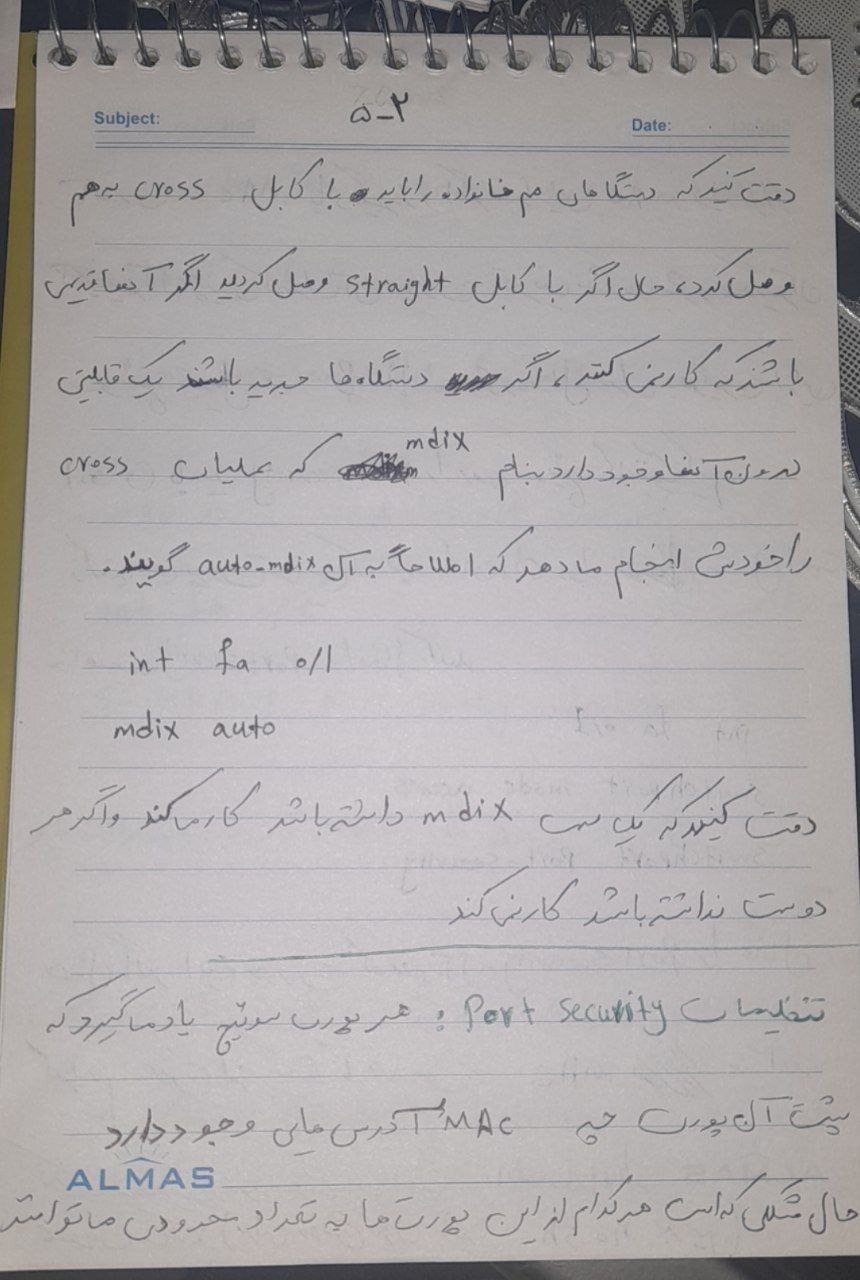 Subject:
۵-۲
Date:
دقت کنید که دستگاه های هم خانواده را باید با کابل cross به هم
وصل کرد، حال اگر با کابل straight وصل کردید اگر آنها قدیمی
باشند که کار نمی کنند، اگر دستگاه ها جدید باشند یک قابلیتی
درون آنها وجود دارد بنام mdix که عملیات cross
را خودش انجام می دهد که اصطلاحاً به آن auto-mdix گویند.
int fa 0/1
mdix auto
دقت کنید که یک سمت mdix داشته باشد کار می کند و اگر هر
دو سمت نداشته باشد کار نمی کند
تنظیمات Port Security : هر پورت سوئیچ یاد می گیرد که
پشت آن پورت چه MAC آدرس هایی وجود دارد
ALMAS
حال مشکلی که است هر کدام از این پورت ها به تعداد محدودی می توانند